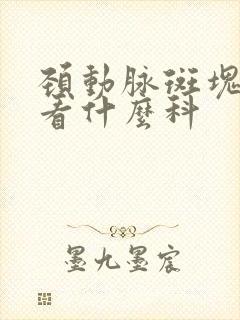 頸動脉斑塊
看什麽科
墨九墨宸